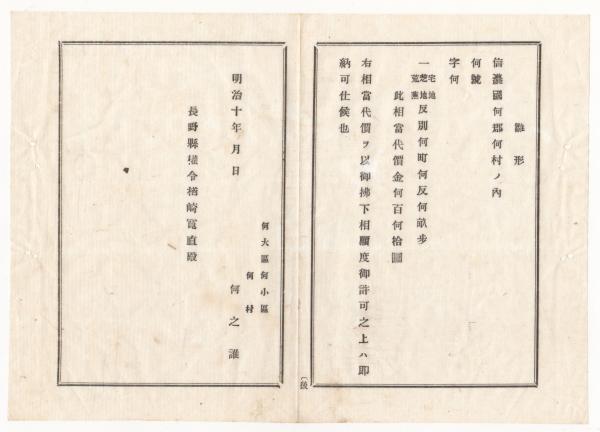 雛形
信濃國何郡何村ノ内
何號
字何
一 宅地 芝地 荒蕪 反別何町何反何畝歩
此相當代價金何百何拾圓
右相當代價ヲ以御拂下相願度御許可之上ハ即
納可仕候也
何大區何小區
何村
何之誰
明治十年月日
長野縣權令楢崎寛直殿